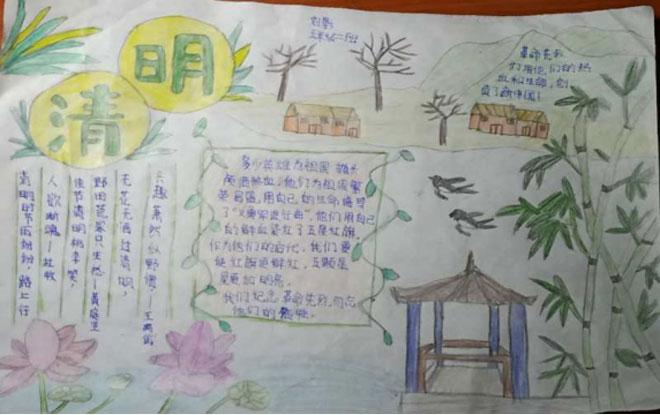 清明
三年级二班
革命先烈
们用他们的热
血和生命,创
造了新中国!
清明时节雨纷纷,路上行
人欲断魂—杜牧
佳节清明桃李笑,
野田荒冢只生愁—黄庭坚
无花无酒过清明,
兴趣萧然似野僧—王禹偁
多少英雄为祖国抛头
颅洒热血,他们为祖国繁
荣昌盛,用自己的生命谱写
了“义勇军进行曲”,他们用自己
的鲜血染红了五星红旗,
作为他们的后代,我们要
让红旗更鲜红,五颗星
星更加明亮。
我们纪念革命先烈,勿忘
他们的